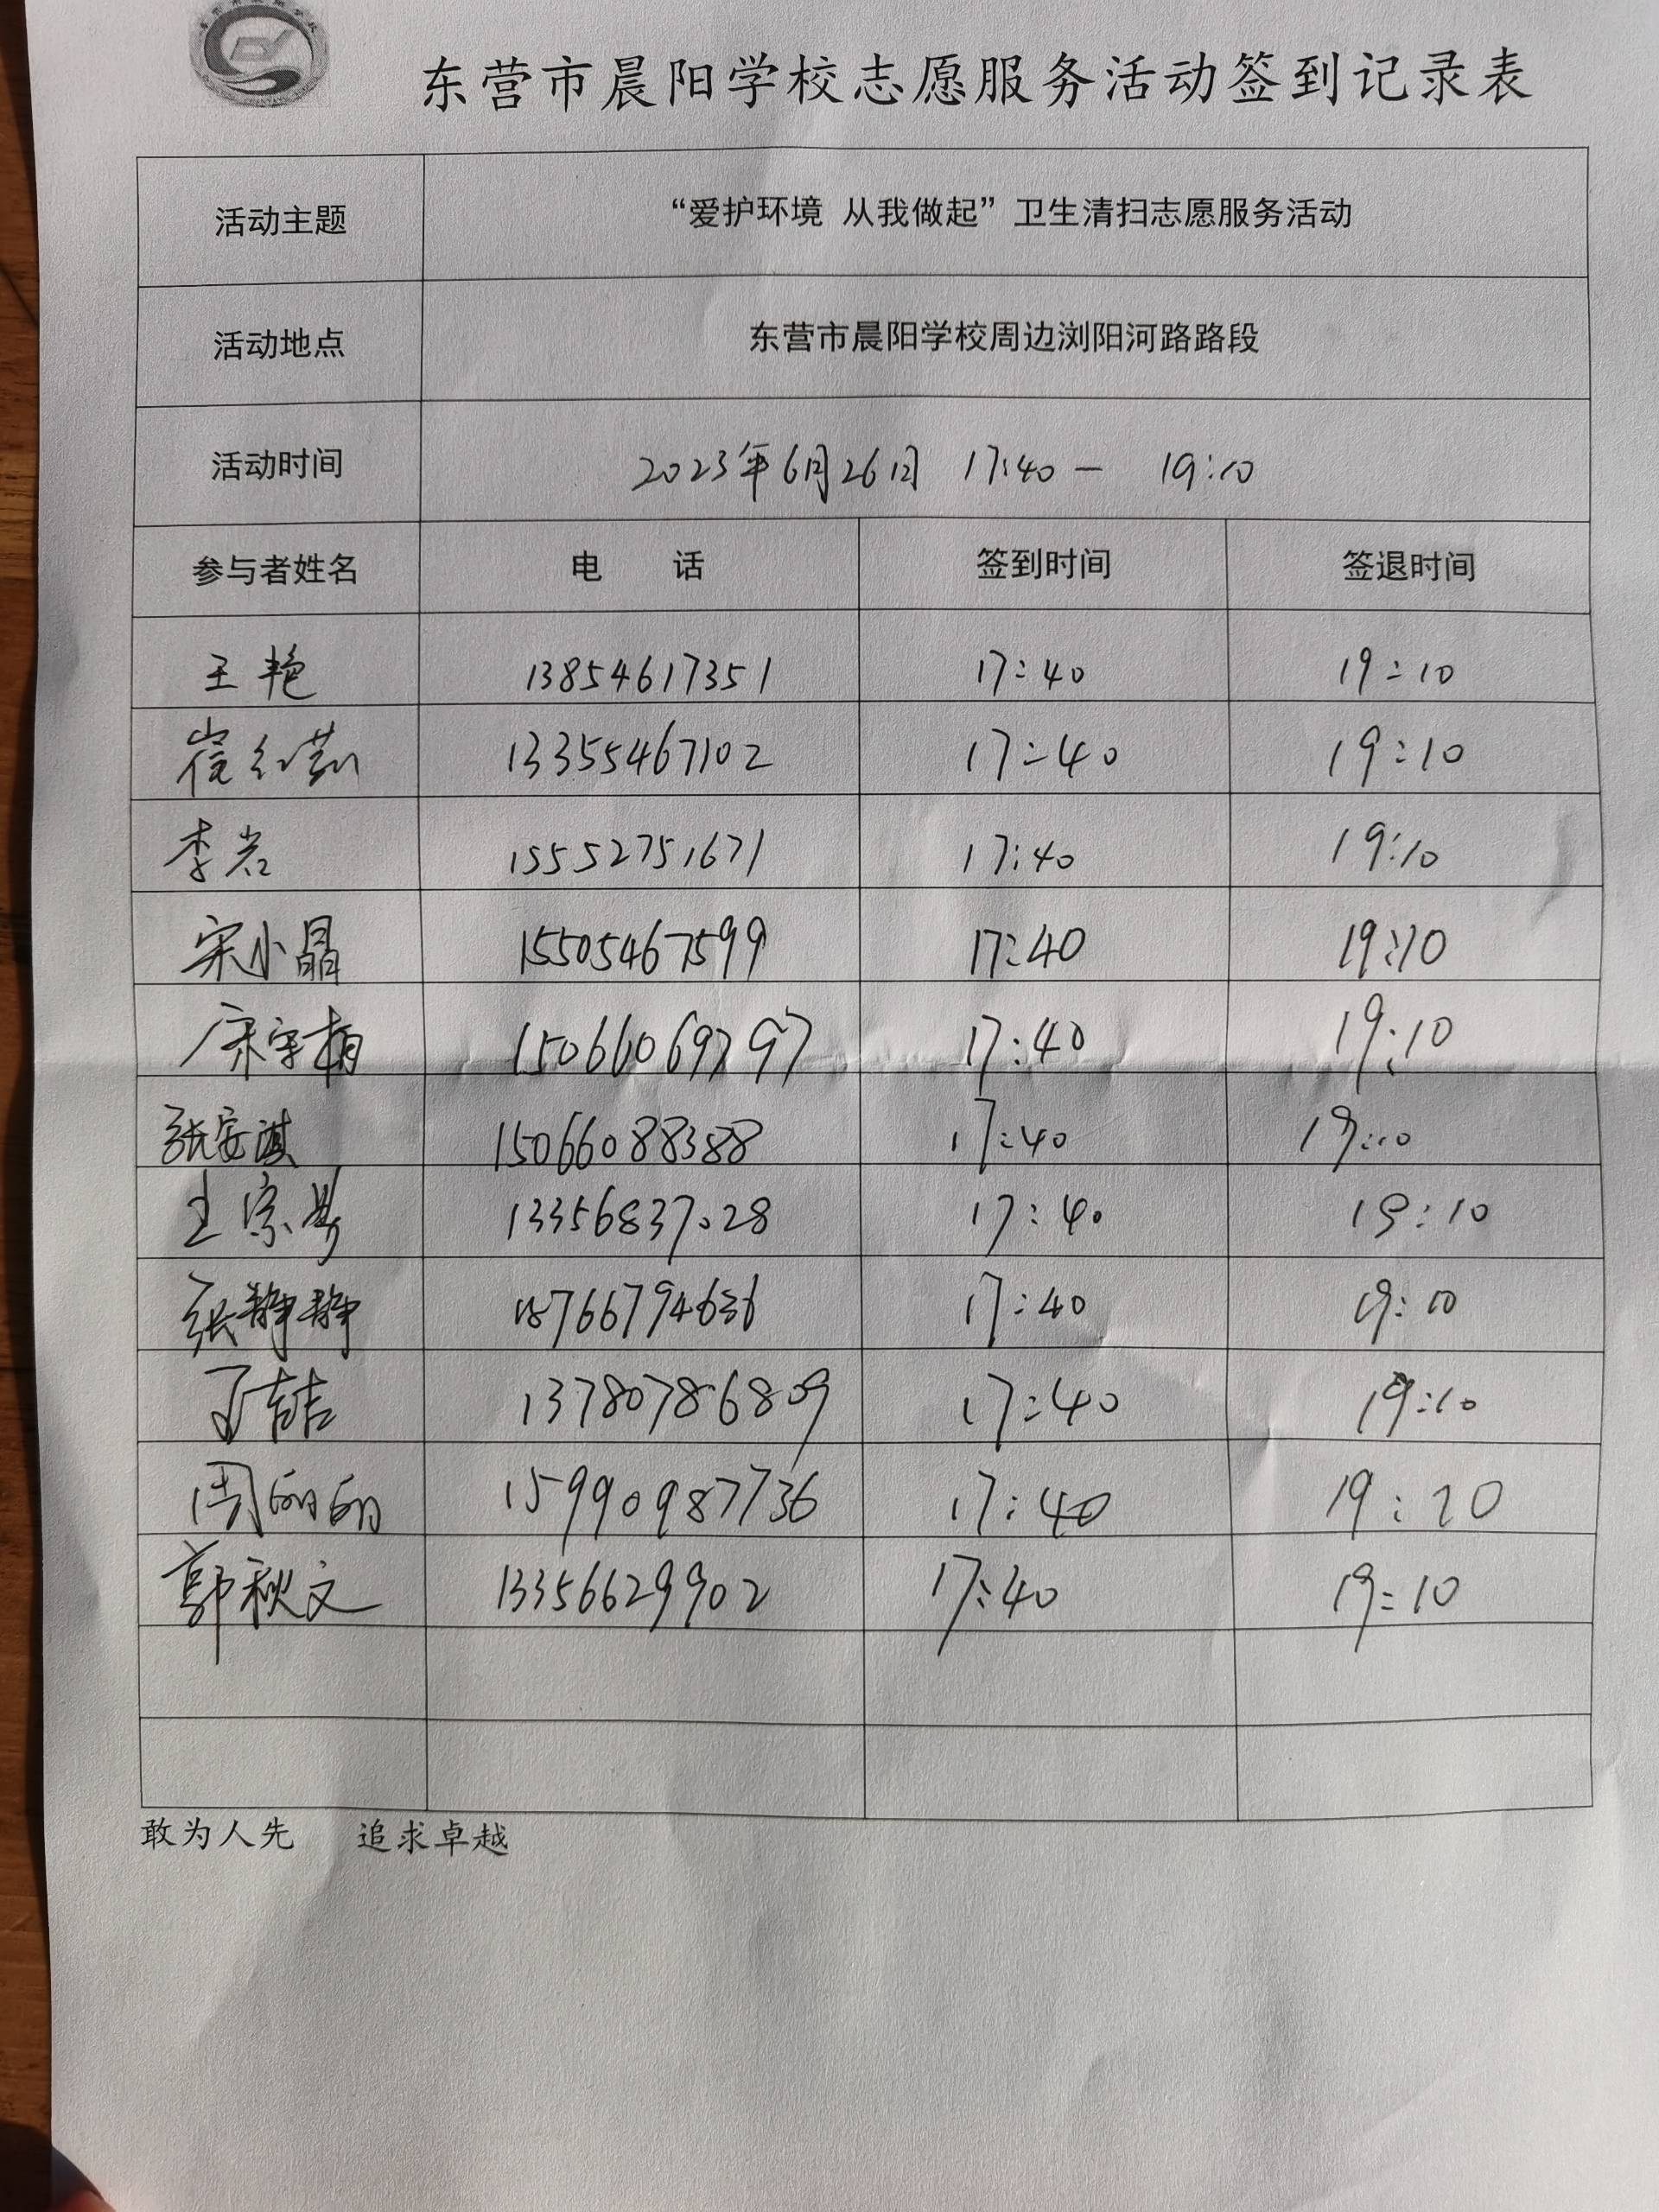 东营市晨阳学校志愿服务活动签到记录表
活动主题 “爱护环境 从我做起”卫生清扫志愿服务活动
活动地点 东营市晨阳学校周边浏阳河路路段
活动时间 2023年6月26日 17:40 — 19:10
参与者姓名 电 话 签到时间 签退时间
王艳 13854617351 17:40 19:10
崔红茹 13355467102 17:40 19:10
李岩 15552751671 17:40 19:10
宋小晶 15505467599 17:40 19:10
宋宇楠 17:40 19:10
张安淇 15066088388 17:40 19:10
13356837028 17:40 19:10
张静静 18766794636 17:40 19:10
孟喆 13780786809 17:40 19:10
周丽丽 15990987736 17:40 19:20
郭秋文 13356629902 17:40 19:10
敢为人先 追求卓越